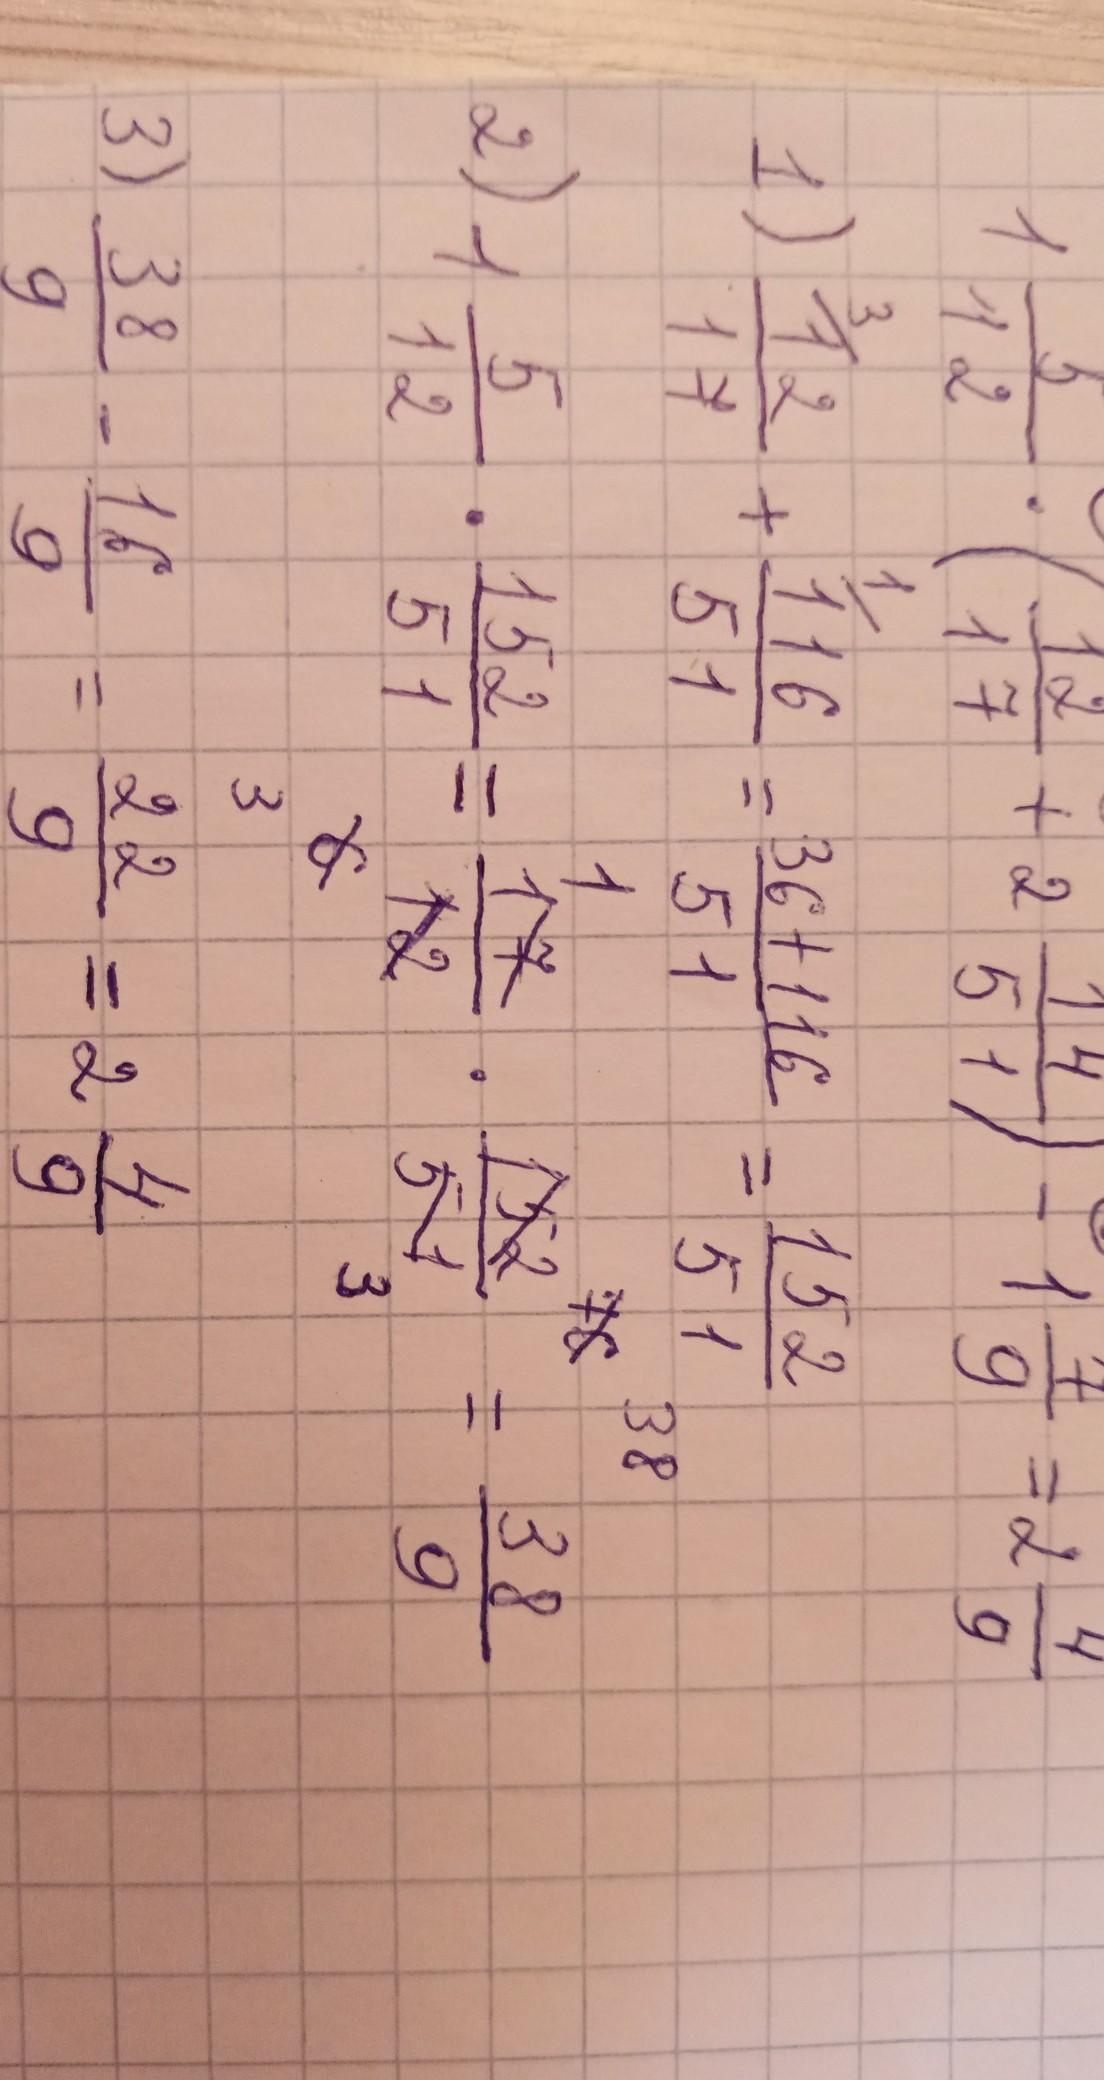 1 5/12 · (12/17 + 2 14/51) - 1 7/9 = 2 4/9
1) 12/17 + 116/51 = 36+116/51 = 152/51
2) 1 5/12 · 152/51 = 17/12 · 152/51 = 38/9
3) 38/9 - 16/9 = 22/9 = 2 4/9